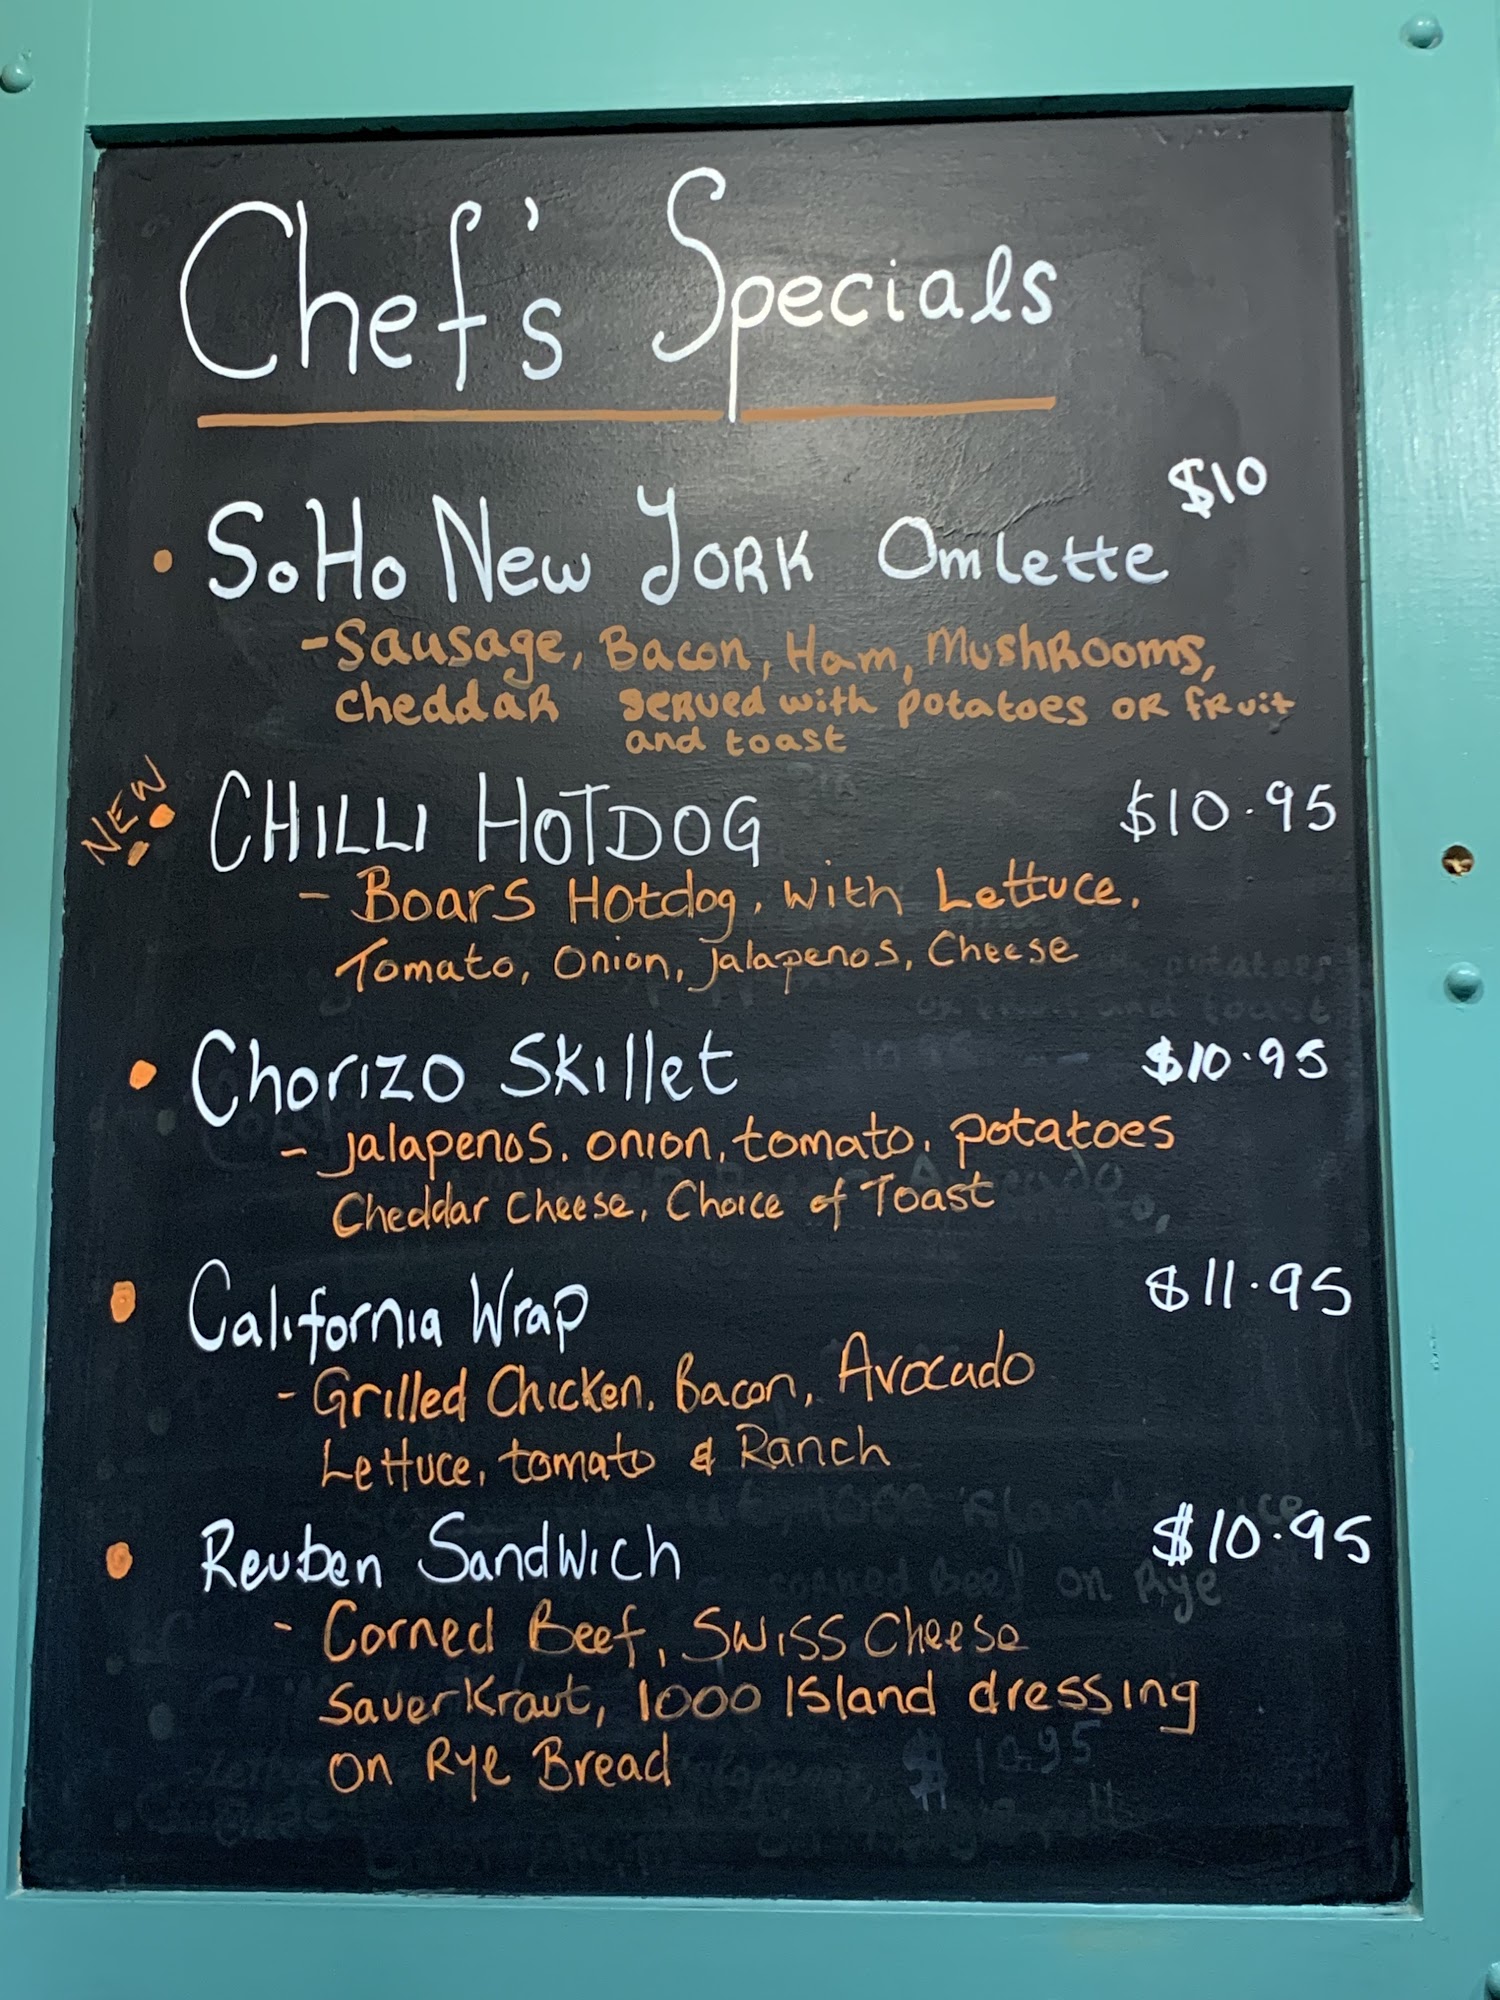 Chef's Specials
$10
• SoHo New York Omlette
- Sausage, Bacon, Ham, Mushrooms,
cheddar served with potatoes or fruit
and toast
NEW!
• CHILLI HOTDOG $10.95
- Boars Hotdog, with Lettuce,
Tomato, Onion, Jalapenos, Cheese
• Chorizo Skillet $10.95
- Jalapenos, onion, tomato, potatoes
Cheddar Cheese, Choice of Toast
• California Wrap $11.95
- Grilled Chicken, Bacon, Avocado
Lettuce, tomato & Ranch
• Reuben Sandwich $10.95
- Corned Beef, Swiss Cheese
SauerKraut, 1000 Island dressing
on Rye Bread